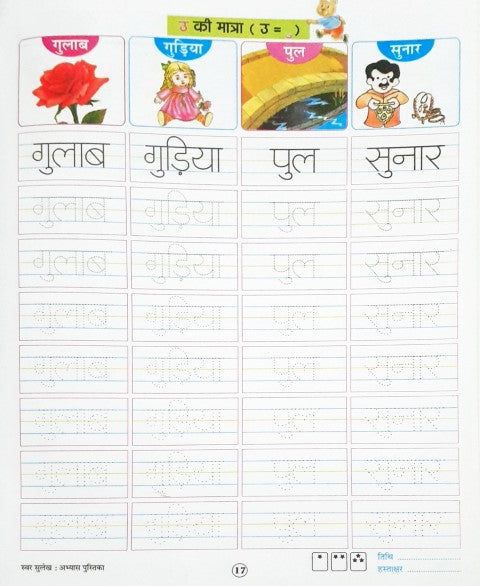 उ की मात्रा ( उ = ु )
गुलाब गुड़िया पुल सुनार
गुलाब गुड़िया पुल सुनार
गुलाब गुड़िया पुल सुनार
गुलाब गुड़िया पुल सुनार
गुलाब गुड़िया पुल सुनार
गुलाब गुड़िया पुल सुनार
गुलाब गुड़िया पुल सुनार
गुलाब गुड़िया पुल सुनार
गुलाब गुड़िया पुल सुनार
स्वर सुलेख : अभ्यास पुस्तिका
17
तिथि
हस्ताक्षर